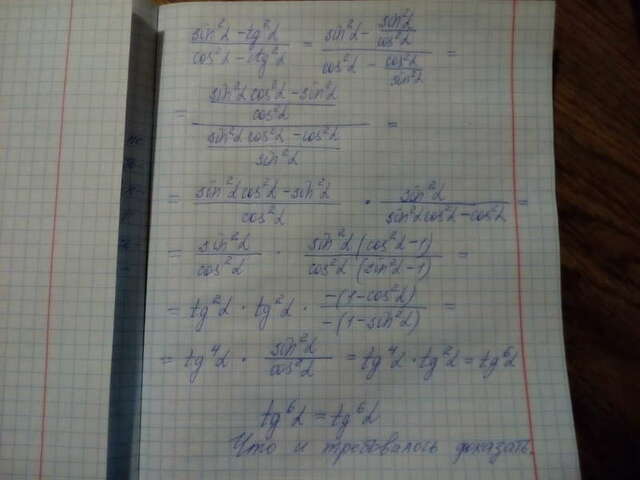 (sin²α - tg²α)/(cos²α - ctg²α) = (sin²α - sin²α/cos²α)/(cos²α - cos²α/sin²α) =
= ((sin²α cos²α - sin²α)/cos²α)/((sin²α cos²α - cos²α)/sin²α) =
= (sin²α cos²α - sin²α)/cos²α · sin²α/(sin²α cos²α - cos²α) =
= sin²α/cos²α · sin²α(cos²α - 1)/cos²α(sin²α - 1) =
= tg²α · tg²α · -(1 - cos²α)/-(1 - sin²α) =
= tg⁴α · sin²α/cos²α = tg⁴α · tg²α = tg⁶α
tg⁶α = tg⁶α
Что и требовалось доказать.